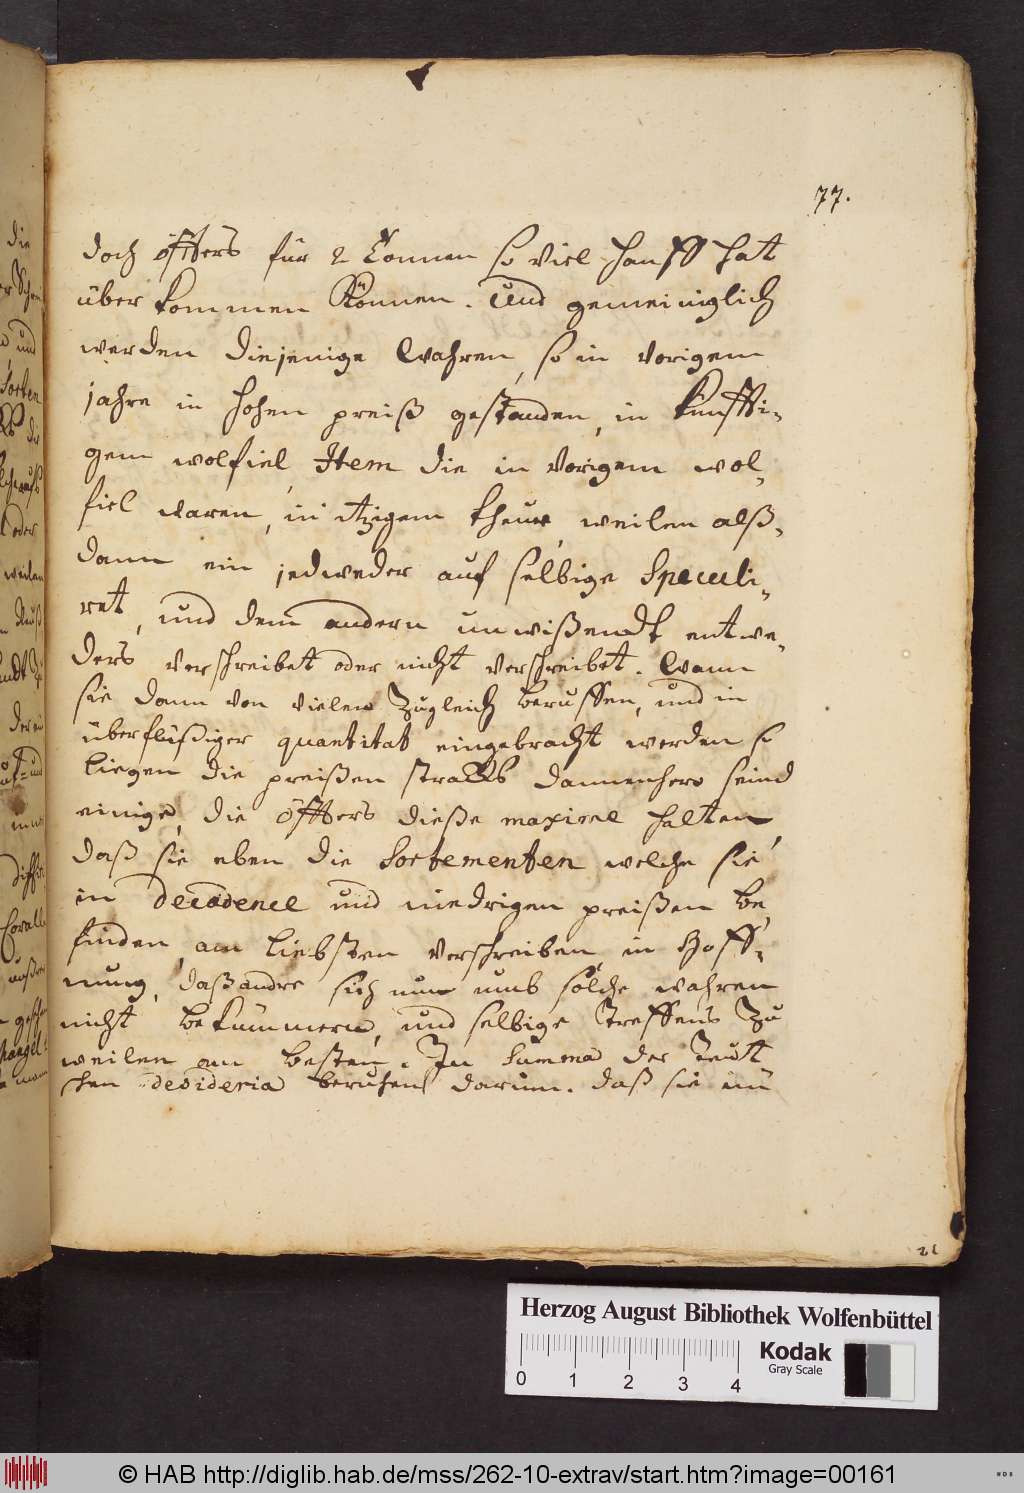 77.
doch öffters für 2 Tonnen so viel hanff hat
über kommen können. Und gemeiniglich
werden diejenige Wahren, so in vorigem
jahre in hohen preiß gestanden, in künffti-
gem wolfiel, Item die in vorigem wol-
fiel waren, in itzigem theur, weilen alß-
dann ein jedweder auf selbige Speculi-
ret, und dem andern unwißendt entwe-
ders verschreibet oder nicht verschreibet. Wann
sie dann von vielen zugleich beruffen, und in
überflüßiger quantitat eingebracht werden so
liegen die preißen stracks dannenhero seind
einige, die öffters dieße maxime halten,
daß sie eben die Sortementen welche sie
in decadence und niedrigen preißen be-
finden, am liebsten verschreiben, in Hoff-
nung, daß andre sich nun umb solche wahren
nicht bekümmern, und selbige Treffens zu
weilen am besten. In Summa der Teut
schen desideria beruhen darinn. daß sie im
21
Herzog August Bibliothek Wolfenbüttel
Kodak
Gray Scale
0 1 2 3 4
© HAB http://diglib.hab.de/mss/262-10-extrav/start.htm?image=00161